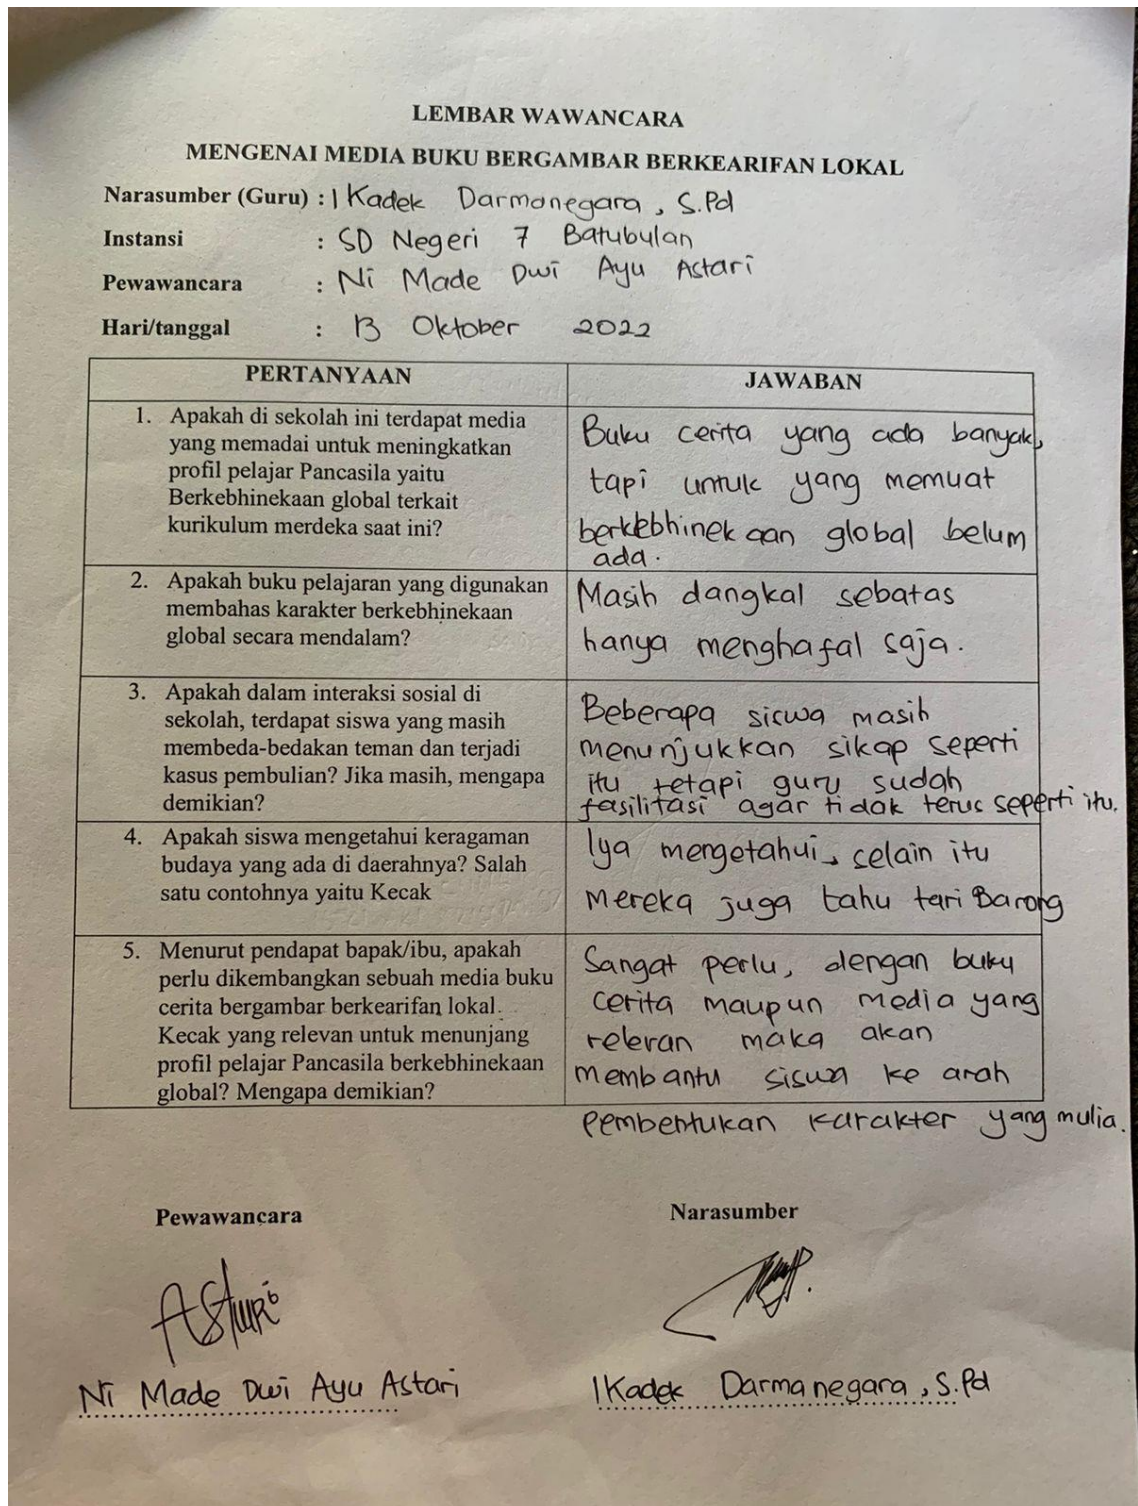 LEMBAR WAWANCARA
MENGENAI MEDIA BUKU BERGAMBAR BERKEARIFAN LOKAL
Narasumber (Guru) : I Kadek Darmanegara, S.Pd
Instansi : SD Negeri 7 Batubulan
Pewawancara : Ni Made Dwi Ayu Astari
Hari/tanggal : 13 Oktober 2022
PERTANYAAN
JAWABAN
1. Apakah di sekolah ini terdapat media
yang memadai untuk meningkatkan
profil pelajar Pancasila yaitu
Berkebhinekaan global terkait
kurikulum merdeka saat ini?
Buku cerita yang ada banyak,
tapi untuk yang memuat
berkebhinekaan global belum
ada.
2. Apakah buku pelajaran yang digunakan
membahas karakter berkebhinekaan
global secara mendalam?
Masih dangkal sebatas
hanya menghafal saja.
3. Apakah dalam interaksi sosial di
sekolah, terdapat siswa yang masih
membeda-bedakan teman dan terjadi
kasus pembulian? Jika masih, mengapa
demikian?
Beberapa siswa masih
menunjukkan sikap seperti
itu tetapi guru sudah
fasilitasi agar tidak terus seperti itu.
4. Apakah siswa mengetahui keragaman
budaya yang ada di daerahnya? Salah
satu contohnya yaitu Kecak
Iya mengetahui, selain itu
mereka juga tahu tari Barong
5. Menurut pendapat bapak/ibu, apakah
perlu dikembangkan sebuah media buku
cerita bergambar berkearifan lokal
Kecak yang relevan untuk menunjang
profil pelajar Pancasila berkebhinekaan
global? Mengapa demikian?
Sangat perlu, dengan buku
cerita maupun media yang
relevan maka akan
membantu siswa ke arah
pembentukan karakter yang mulia.
Pewawancara
Narasumber
Astari
Ni Made Dwi Ayu Astari
I Kadek Darmanegara, S.Pd